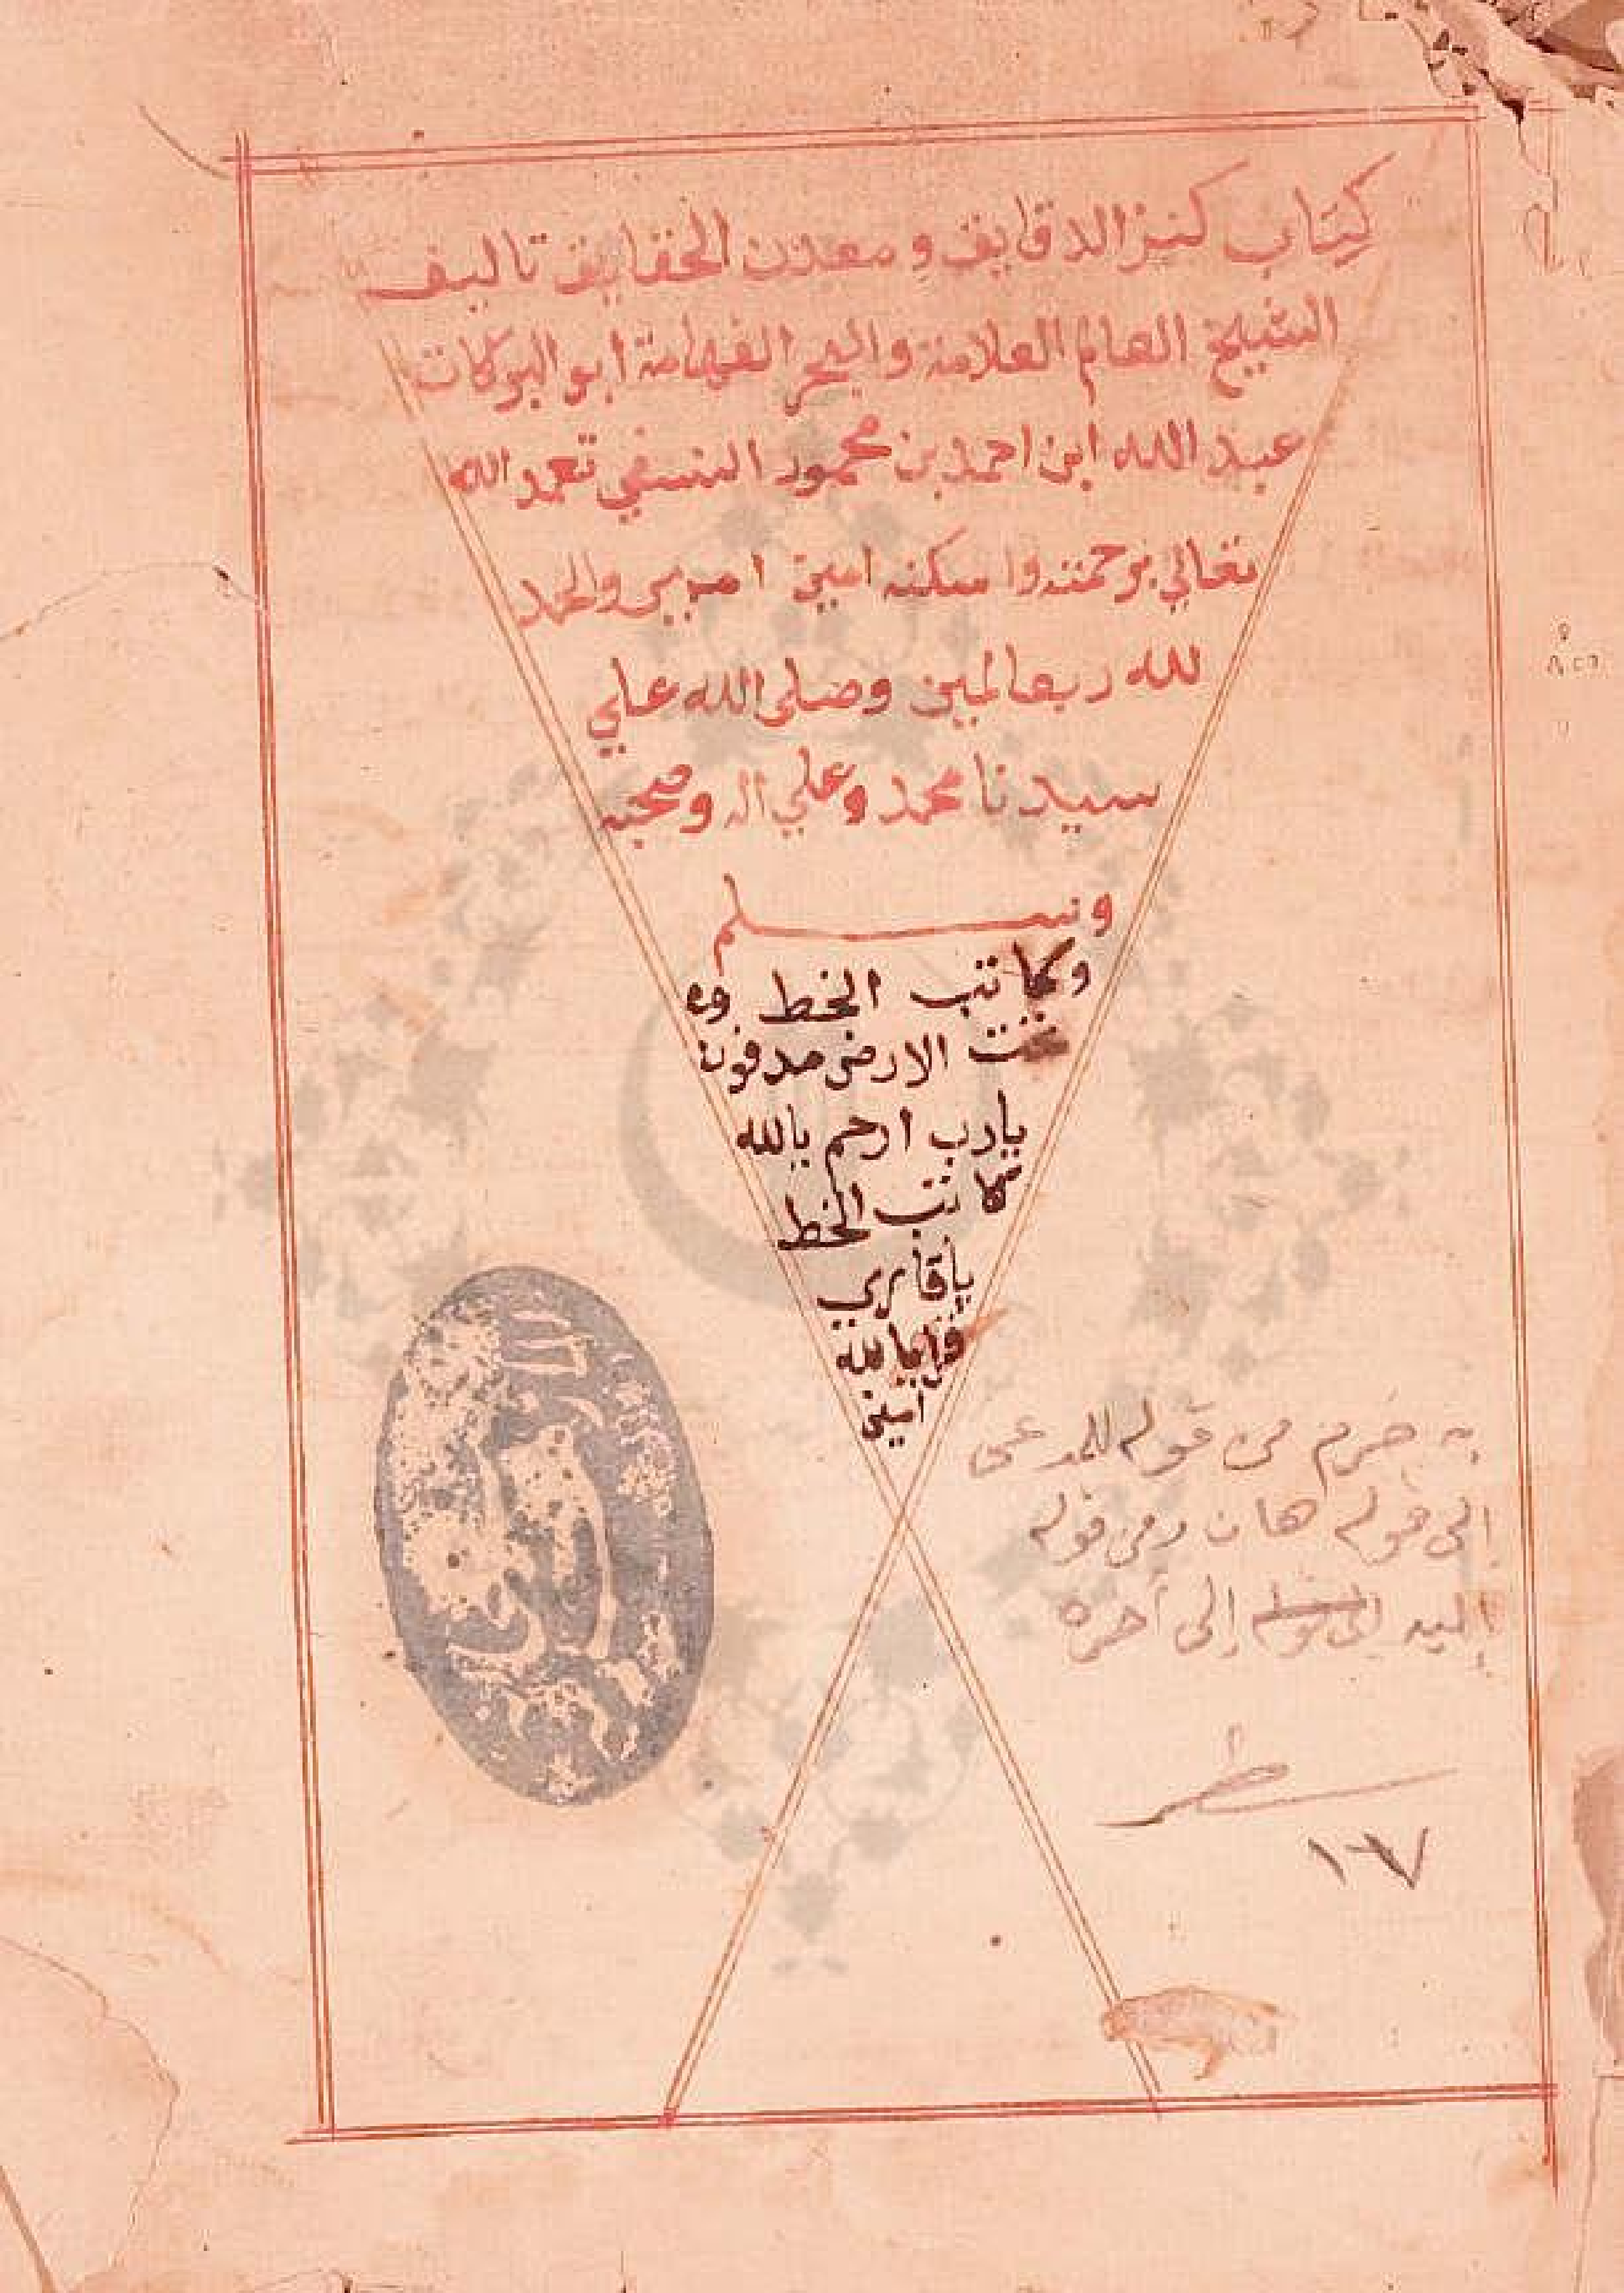 كتاب كنز الدقايق ومعدن الحقايق تاليف
الشيخ العالم العلامة والبحر الفهامة ابو البركات
عبد الله ابن احمد بن محمود النسفي تغمد الله
تعالي برحمته وا سكنه امين امين والحمد
لله ربعالمين وصلى الله علي
سيدنا محمد وعلي اله وصحبه
وسلم
وكاتب الخط
تحت الارض مدفون
يارب ارحم بالله
كاتب الخط
ياقاري
امين
به خرم من قوله للمدعى
إلى قوله هان ومن قوله
اليد إلى آخره